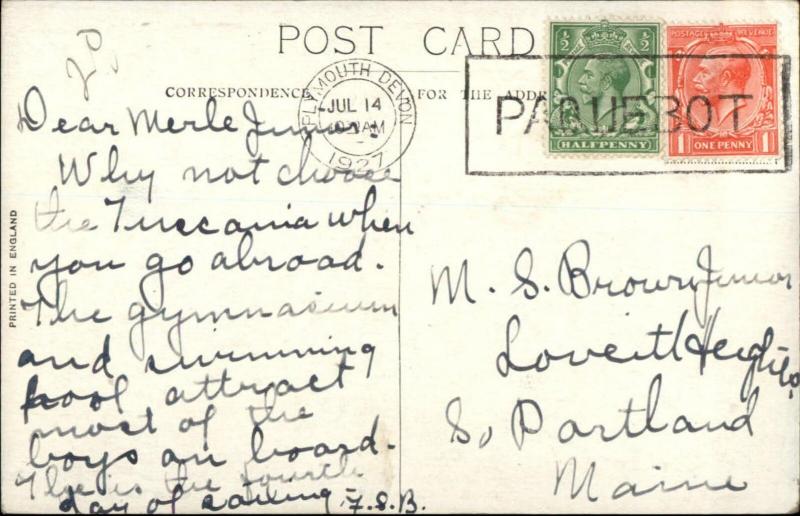 POST CARD
CORRESPONDENCE
FOR THE ADDR
PRINTED IN ENGLAND
20
PLYMOUTH DEVON
JUL 14
AM
1927
PAQUEBOT
½ ½
HALFPENNY
POSTAGE REVENUE
1 1
ONE PENNY
Dear Merle Junior,
Why not choose
the Tuscania when
you go abroad.
The gymnasium
and swimming
pool attract
most of the
boys on board.
This is the fourth
day of sailing. F.S.B.
M. S. Brown, Junior
Loveitt Heights,
So Portland
Maine